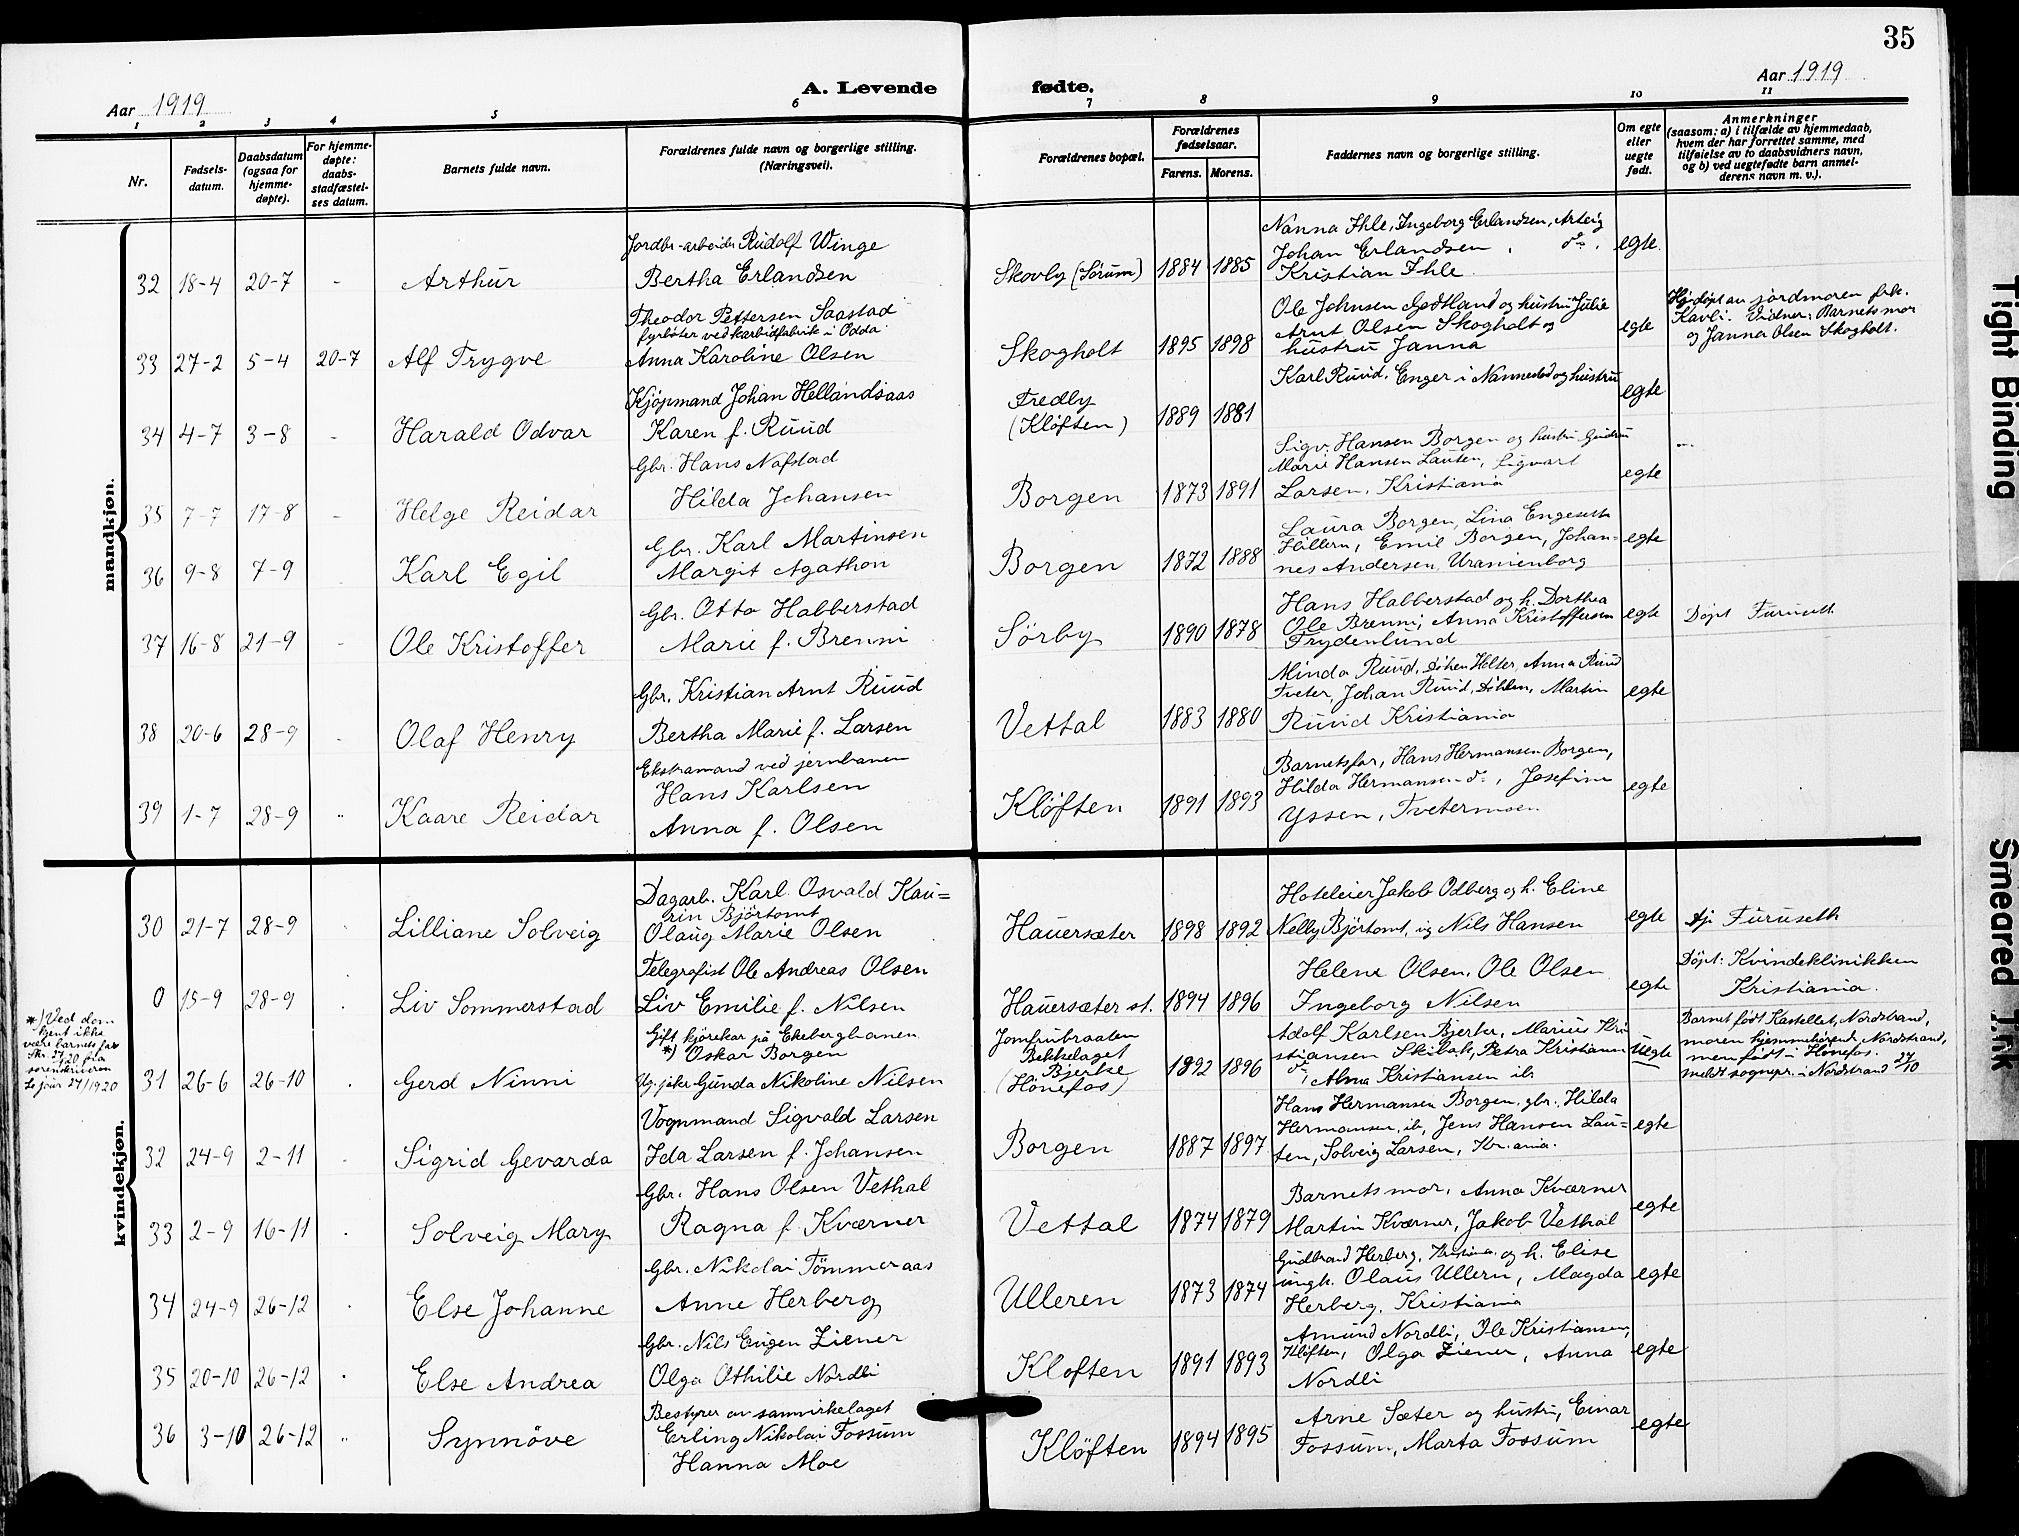 35
Aar 1919
A. Levende fødte.
Aar 1919
1 2 3 4 5 6 7 8 9 10 11
Nr.
Fødsels-
datum.
Daabsdatum
(ogsaa for
hjemme-
døpte).
For hjemme-
døpte:
daabs-
stadfæstel-
ses datum.
Barnets fulde navn.
Forældrenes fulde navn og borgerlige stilling.
(Næringsvei).
Forældrenes bopæl.
Forældrenes
fødselsaar.
Farens. Morens.
Faddernes navn og borgerlige stilling.
Om egte
eller
uegte
født.
Anmerkninger
(saasom: a) i tilfælde av hjemmedaab,
hvem der har forrettet samme, med
tilføielse av to daabsvidners navn,
og b) ved uegtefødte barn anmel-
derens navn m. v.).
mandkjøn.
32 18-4 20-7 - Arthur
Jordbr-arbeider Rudolf Winge
Bertha Erlandsen
Skovly (Sørum) 1884 1885
Nanna Ihle, Ingeborg Erlandsen, Arteig
Johan Erlandsen, do.
Kristian Ihle
egte.
33 27-2 5-4 20-7 Alf Trygve
Theodor Pettersen Saastad
fyrbøter ved karbidfabrik i Odda
Anna Karoline Olsen
Skogholt 1895 1898
Ole Johnsen Godtland og hustru Julie
Arnt Olsen Skogholt og
hustru Janna
egte
Hj.døpt av jordmoren frk.
Kavli. Vidner: Barnets mor
og Janna Olsen Skogholt.
34 4-7 3-8 - Harald Odvar
Kjøpmand Johan Hellandsaas
Karen f. Ruud
Fredly
(Kløften) 1889 1881
Karl Ruud. Enger i Nannestad og hustru
egte
35 7-7 17-8 - Helge Reidar
Gbr. Hans Nafstad
Hilda Johansen
Borgen 1873 1891
Sigv. Hansen Borgen og hustru Gudrun
Marie Hansen Lauten, Sigvart
Larsen, Kristiania
egte
36 9-8 7-9 Karl Egil
Gbr. Karl Martinsen
Margit Agathon
Borgen 1872 1888
Laura Borgen, Lina Engeseth
Hillern, Emil Borgen, Johan-
nes Andersen, Uranienborg
egte
37 16-8 21-9 - Ole Kristoffer
Gbr. Otto Habberstad
Marie f. Brenni
Sörby 1890 1878
Hans Habberstad og h. Dorthea
Ole Brenni, Anna Kristoffersen
Frydenlund
egte
Döpt Furuseth
38 20-6 28-9 - Olaf Henry
Gbr. Kristian Arnt Ruud
Bertha Marie f. Larsen
Vettal 1883 1880
Minda Ruud, Döhlen Holter, Anna Ruud
Tveter, Johan Ruud, Döhlen, Martin
Ruud Kristiania
egte
39 1-7 28-9 Kaare Reidar
Ekstramand ved jernbanen
Hans Karlsen
Anna f. Olsen
Kløften 1891 1893
Barnetsfar, Hans Hermansen Borgen,
Hilda Hermansen do, Josefine
Yssen, Tvetermoen
egte
kvindekjøn.
30 21-7 28-9 Lilliane Solveig
Dagarb. Karl Osvald Kau=
rin Björtomt
Olaug Marie Olsen
Hauersæter 1898 1892
Hoteleier Jakob Odberg og h. Eline
Nelly Björtomt, og Nils Hansen
egte
Furuseth
0 15-9 28-9 Liv Sommerstad
Telegrafist Ole Andreas Olsen
Liv Emilie f. Nilsen
Hauersæter st. 1894 1896
Helene Olsen, Ole Olsen
Ingeborg Nilsen
egte
Döpt: Kvindeklinikken
Kristiania.
*) Ved dom
kjent ikke
være barnets far
31 26-6 26-10 Gerd Ninni
Gift kjörekar på Ekebergbanen
*) Oskar Borgen
Ug. pike Gunda Nikoline Nilsen
Jomfrubraaten
Bekkelaget
Bjerke
(Hönefos) 1892 1896
Adolf Karlsen Bjerke, Marius Kri
stiansen Skibak, Petra Kristiansen
do, Alma Kristiansen ib.
Uegte
Barnet födt Kastellet, Nordstrand,
moren hjemmehörende, Nordstrand,
men födt i Hönefos.
meldt sognepr. i Nordstrand 27/10
32 24-9 2-11 Sigrid Gevarda
Vognmand Sigvald Larsen
Ida Larsen f. Johansen
Borgen 1887 1897
Hans Hermansen Borgen, gbr., Hilda
Hermansen, ib, Jens Hansen Lau=
ten, Solveig Larsen, Kr.ania.
egte
33 2-9 16-11 Solveig Mary
Gbr. Hans Olsen Vethal
Ragna f. Kværner
Vettal 1874 1879
Barnets mor, Anna Kværner
Martin Kværner, Jakob Vethal
egte
34 24-9 26-12 Else Johanne
Gbr. Nikolai Tömmeraas
Anne Herberg
Ulleren 1873 1874
Gudbrand Herberg, Kristiania og h. Elise
ungk. Olaus Ullern, Magda
Herberg, Kristiania
egte
35 20-10 26-12 Else Andrea
Gbr. Nils Eugen Ziener
Olga Othilie Nordli
Kloften 1891 1893
Amund Nordli, Ole Kristiansen,
Kløften, Olga Ziener, Anna
Nordli
egte
36 3-10 26-12 Synnöve
Bestyrer av samvirkelaget
Erling Nikolai Fossum
Hanna Moe
Kløften 1894 1895
Arne Sæter og hustru, Einar
Fossum, Marta Fossum
egte
Tight Binding
Smeared Ink